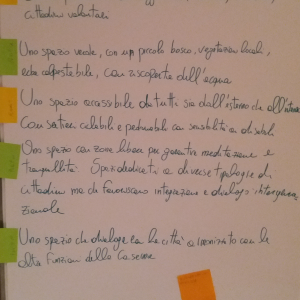 cittadini volontari
Uno spazio verde, con un piccolo bosco, vegetazione locale,
erba calpestabile, con riscoperta dell'acqua
Uno spazio accessibile da tutti sia dall'esterno che all'interno
Con sentieri ciclabili e pedonabili con sensibilità ai disabili
Uno spazio con zone libere per garantire meditazione e
tranquillità. Spazi dedicati a diverse tipologie di
cittadini ma che favoriscano integrazione e dialogo intergenera
zionale
Uno spazio che dialoga con la città armonizzato con le
altre funzioni della Caserma